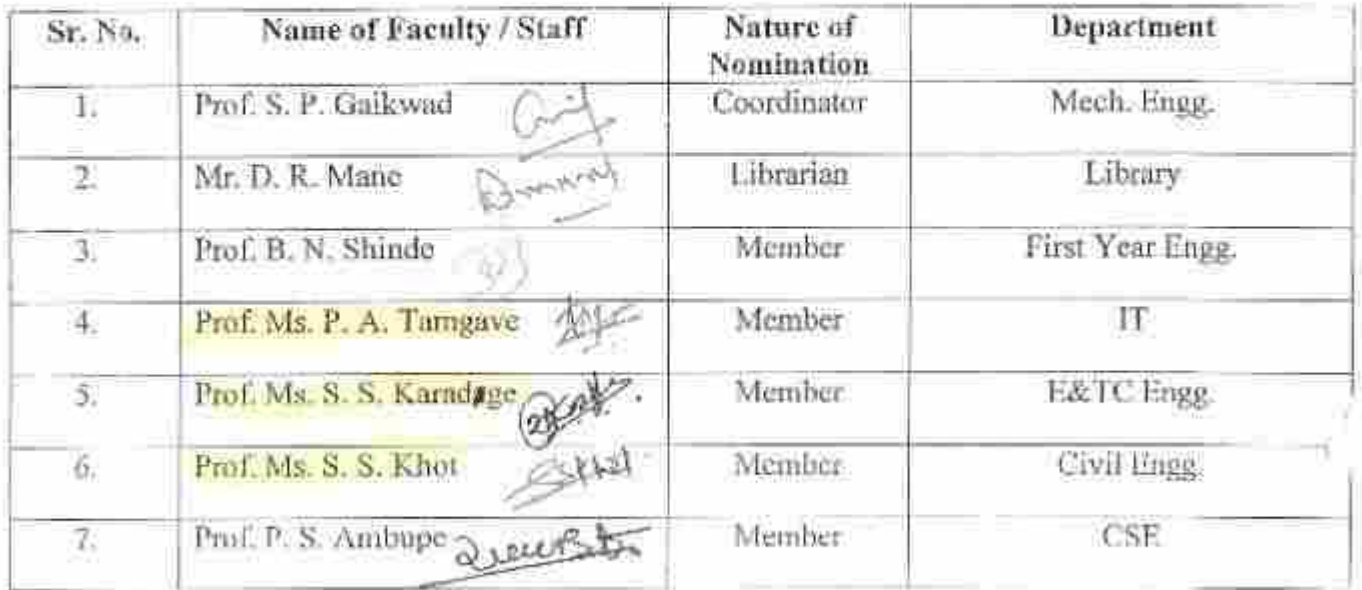 Sr. No. Name of Faculty / Staff Nature of Nomination Department
1. Prof. S. P. Gaikwad Coordinator Mech. Engg.
2. Mr. D. R. Mane Librarian Library
3. Prof. B. N. Shinde Member First Year Engg.
4. Prof. Ms. P. A. Tamgave Member IT
5. Prof. Ms. S. S. Karadge Member E&TC Engg.
6. Prof. Ms. S. S. Khot Member Civil Engg.
7. Prof. P. S. Ambupe Member CSE